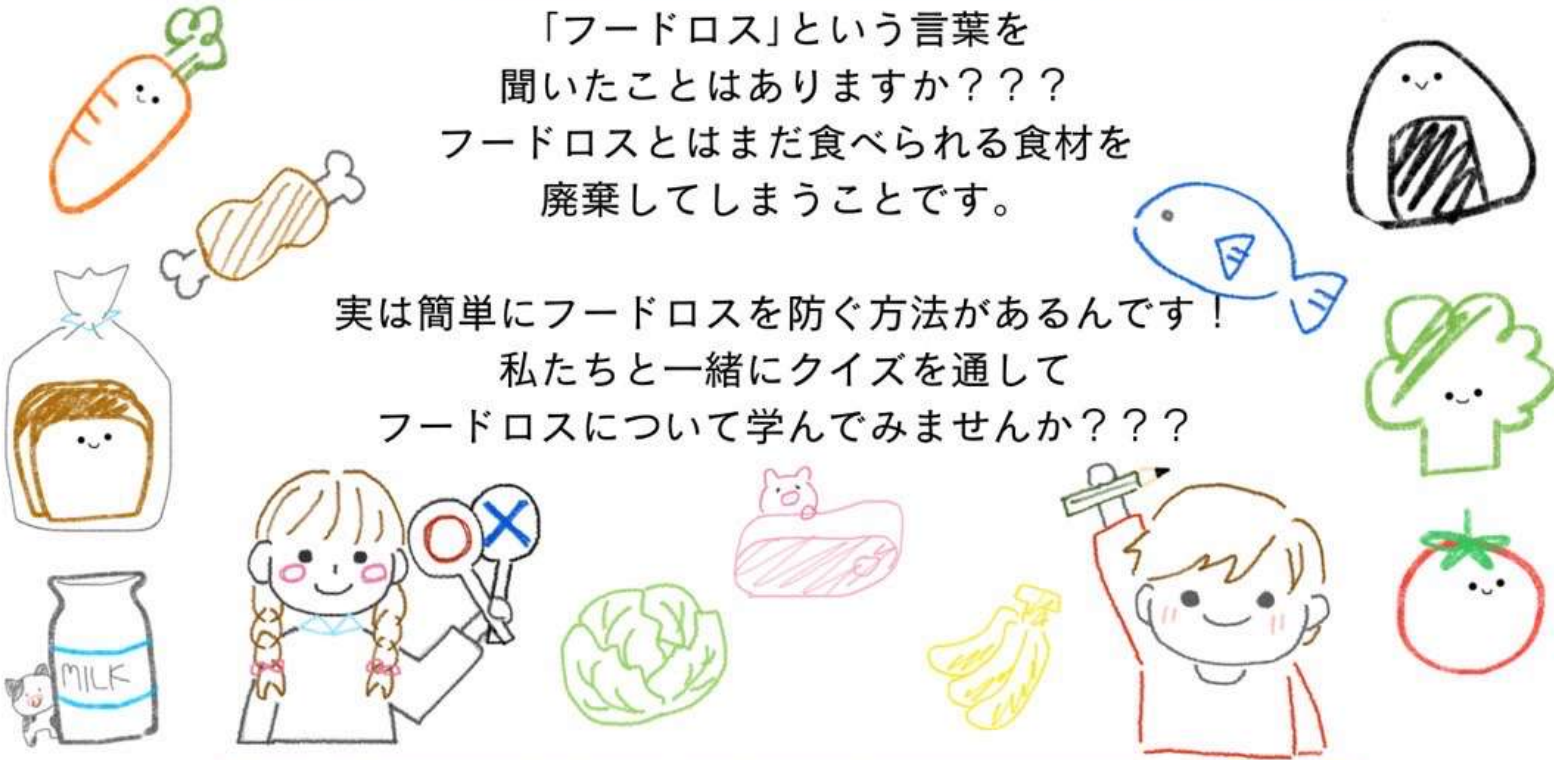 「フードロス」という言葉を
聞いたことはありますか？？？
フードロスとはまだ食べられる食材を
廃棄してしまうことです。
実は簡単にフードロスを防ぐ方法があるんです！
私たちと一緒にクイズを通して
フードロスについて学んでみませんか？？？
MILK